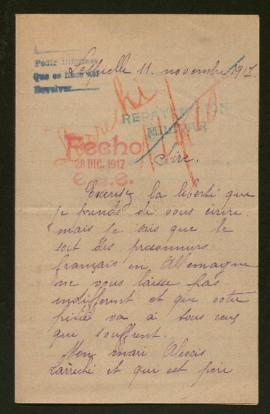 Pedir informes
Que es hace así
Devolver
11 novembre 1917
REPATRIACION
MILITAR
Fecho
28 DIC. 1917
Sire,
Excusez la liberté que
je prends de vous écrire
mais je sais que le
sort des prisonniers
français en Allemagne
ne vous laisse pas
indifférent et que votre
pitié va à tous ceux
qui souffrent.
Mon mari Alexis
et qui est père